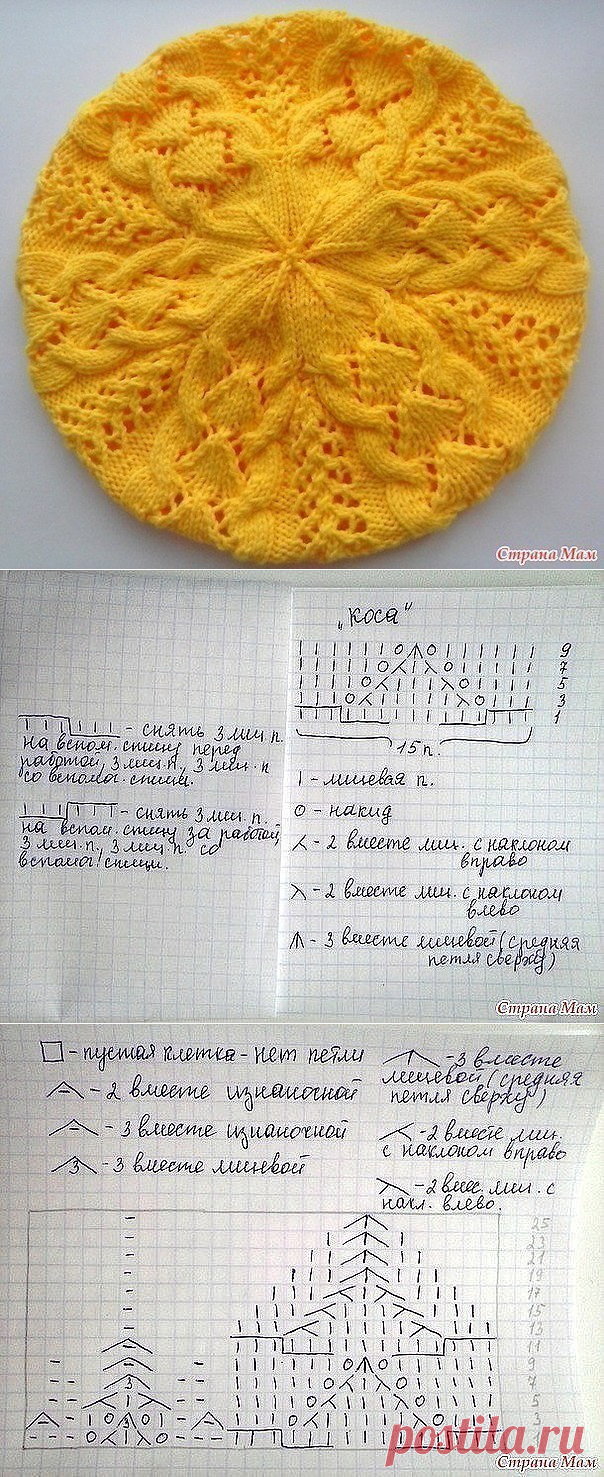 Страна Мам
„коса"
9
7
5
3
1
15 п.
- снять 3 лиц. п.
на вспом. спицу перед
работой, 3 лиц. п., 3 лиц. п
со вспомог. спицы.
- снять 3 лиц. п.
на вспом. спицу за работой,
3 лиц. п., 3 лиц. п. со
вспомог. спицы.
| - лицевая п.
O - накид
- 2 вместе лиц. с наклоном
вправо
- 2 вместе лиц. с наклоном
влево
- 3 вместе лицевой (средняя
петля сверху)
Страна Мам
- пустая клетка - нет петли
- 2 вместе изнаночной
- 3 вместе изнаночной
3 - 3 вместе лицевой
- 3 вместе
лицевой (средняя
петля сверху)
- 2 вместе лиц.
с наклоном вправо
- 2 вмес. лиц. с
накл. влево.
25
23
21
19
17
15
13
11
9
7
5
3
3
postila.ru
Страна Мам